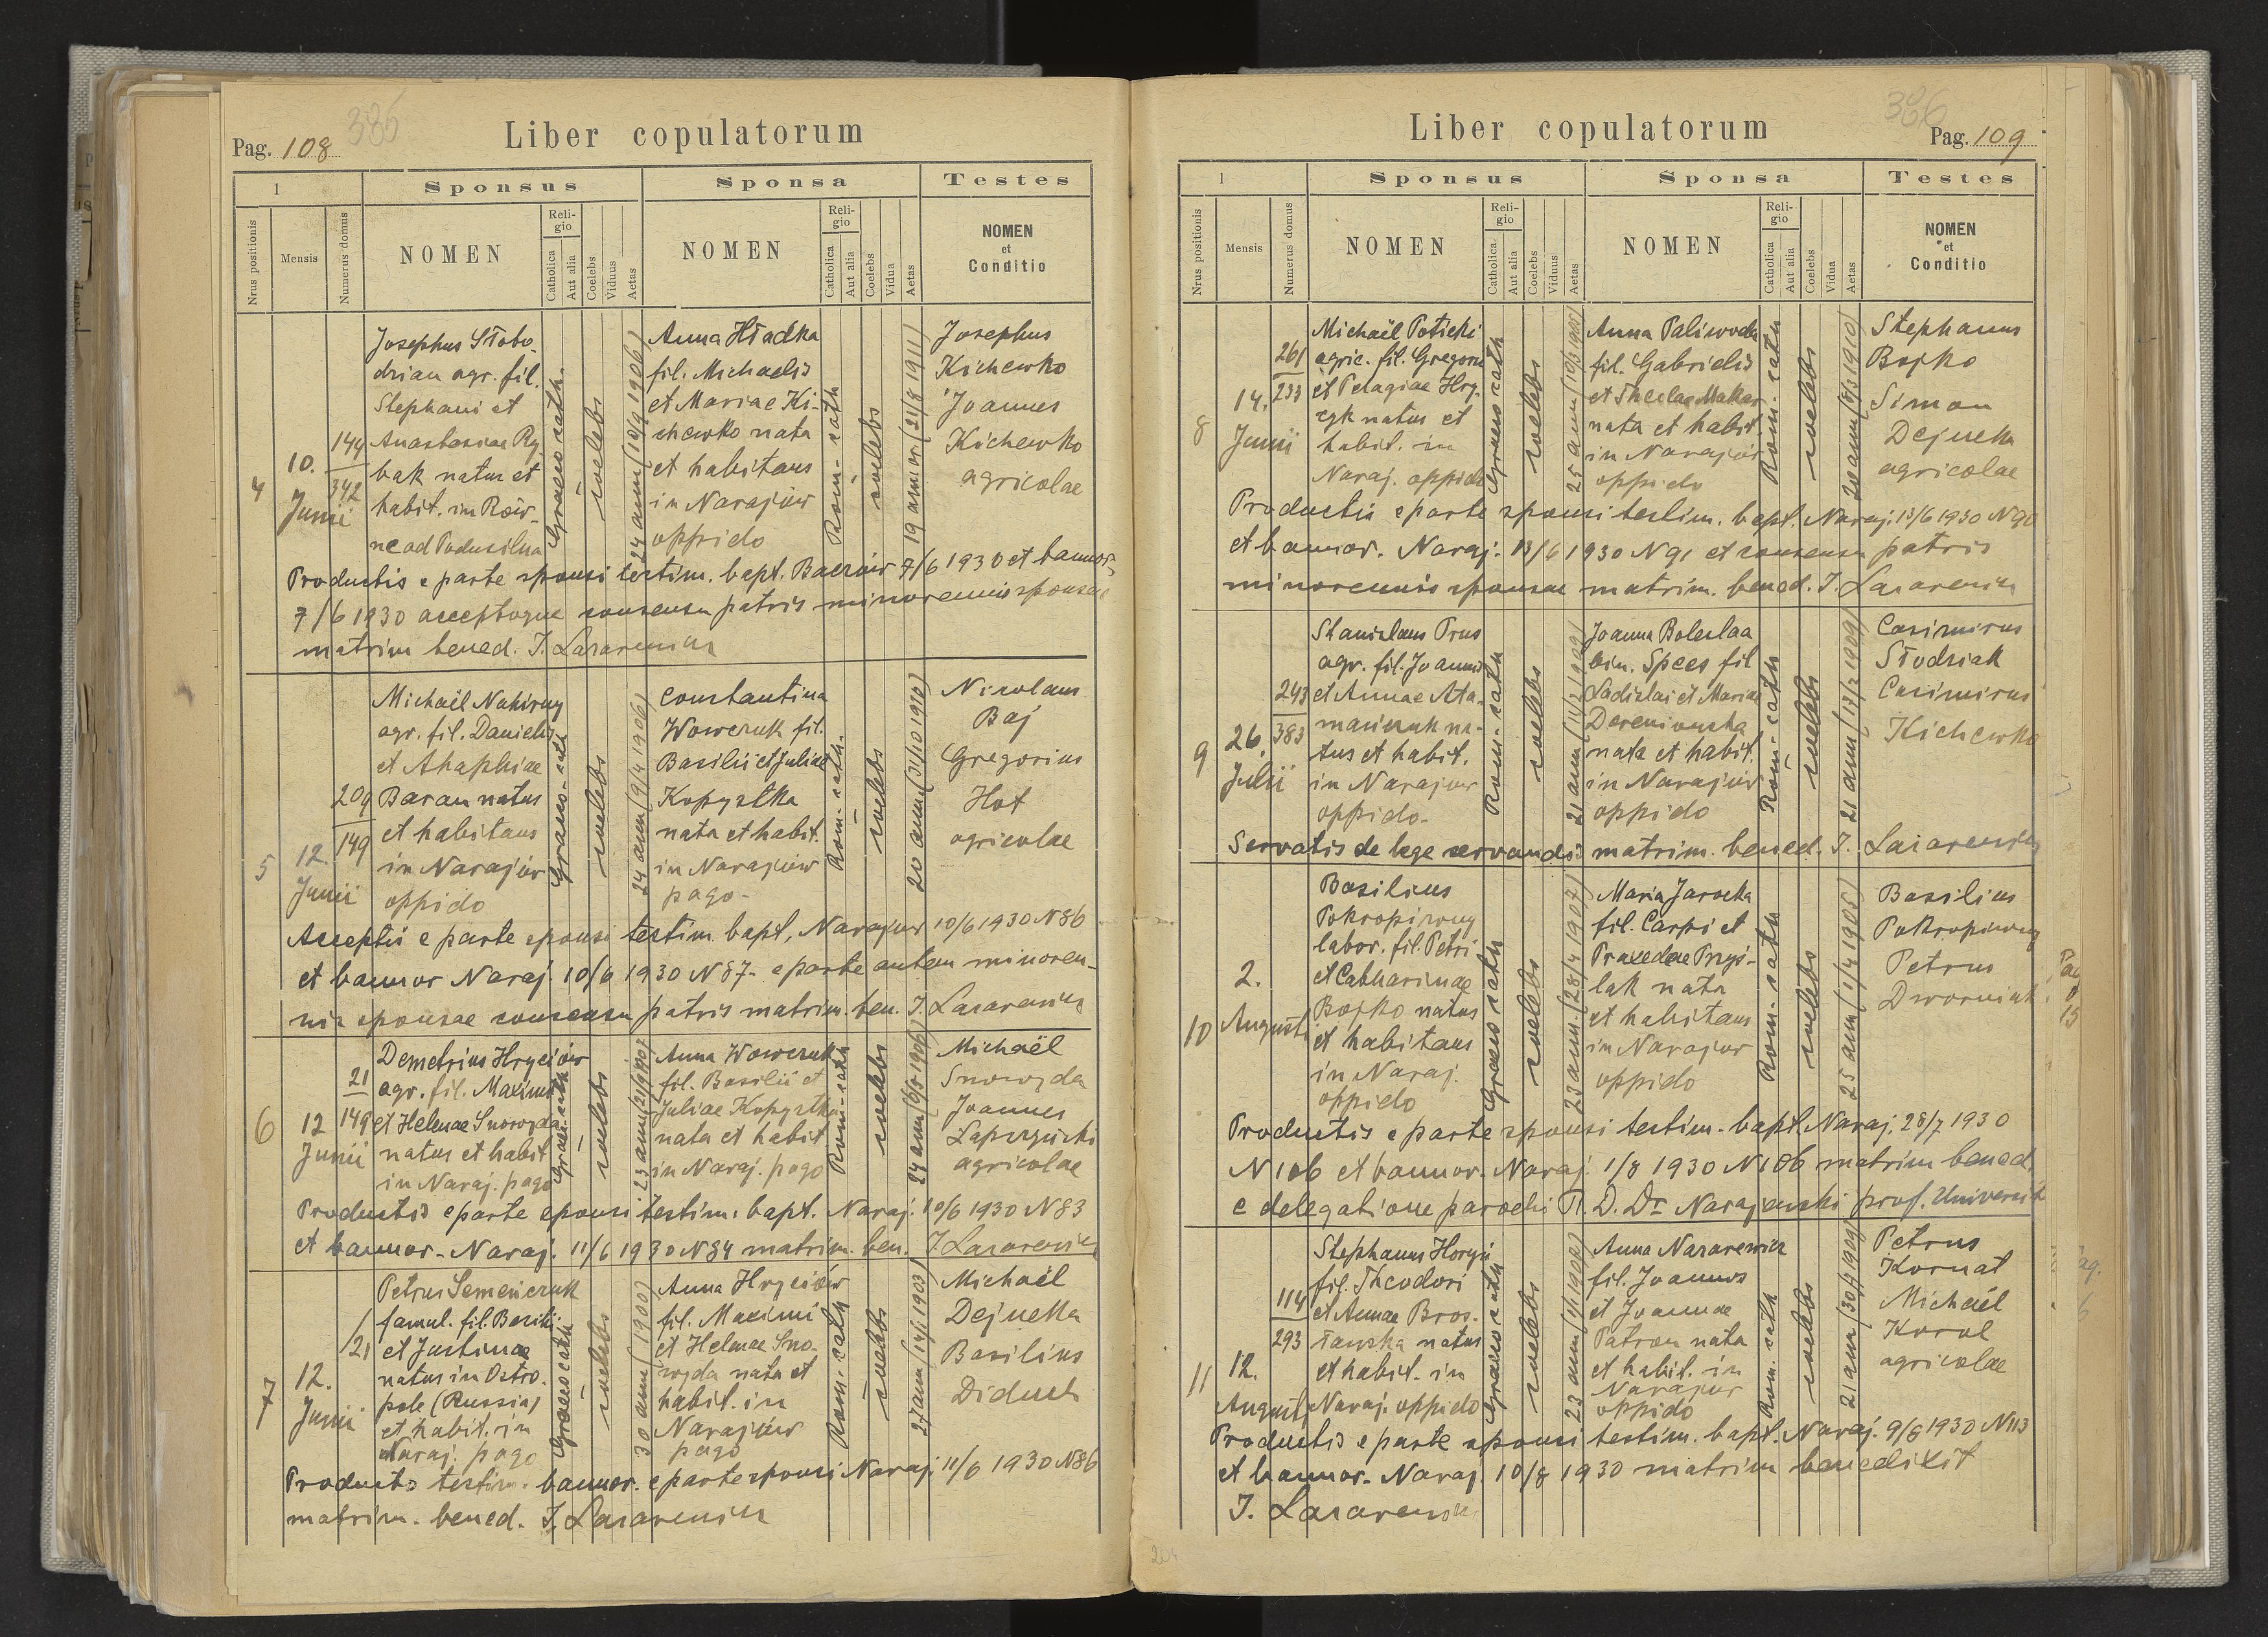 385
Liber copulatorum
Pag. 108
1
Sponsus
Sponsa
Testes
Nrus positionis
Mensis
Numerus domus
NOMEN
Religio
Catholica
Aut alia
Coelebs
Viduus
Aetas
NOMEN
Religio
Catholica
Aut alia
Coelebs
Vidua
Aetas
NOMEN
et
Conditio
4
10.
Junii
144
342
Josephus Słobo-
drian agr. fil.
Stephani et
Anastasiae Ry-
bak natus et
habit. in Rów-
ne ad Podusilna
Graeco cath.
coelebs
24 ann (10/9 1906)
Anna Hładka
fil. Michaelis
et Mariae Ki-
chewko nata
et habitans
in Narajów
oppido
Rom-cath
coelebs
19 ann. or (21/8 1911)
Josephus
Kichewko
Joannes
Kichewko
agricolae
Productis e parte sponsi testim. bapt. 7/6 1930 et bannor.
7/6 1930 acceptoque consensu patris minorennis sponsae
matrim bened. J. Lazarewicz
5
12.
Junii
209
149
Michaël Nahirny
agr. fil. Danielis
et Ahaphiae
Baran natus
et habitans
in Narajów
oppido
Graeco-cath
coelebs
24 ann (9/4 1906)
Constantina
Woweruk fil.
Basilii et Juliae
Kopystka
nata et habit.
in Narajów
pago-
Rom-cath.
coelebs
20 ann (31/10 1910)
Nicolaus
Baj
Gregorius
Hot
agricolae
Acceptis e parte sponsi testim bapt. Narajow 10/6 1930 N 86
et bannor Naraj. 10/6 1930 N 87- e parte autem minoren-
nis sponsae consensu patris matrim. ben. J. Lazarewicz
6
12
Junii
21
149
Demetrius Hryciów
agr. fil. Maximi
et Helenae Snowyda
natus et habit
in Naraj. pago
Graeco-cath
coelebs
Anna Woweruk
fil. Basilii et
Juliae Kopystka
nata et habit
in Naraj. pago
Rom-cath
coelebs
Michaël
Snowyda
Joannes
Łapszyński
agricolae
Productis e parte sponsi testim. bapt. Naraj. 10/6 1930 N 83
et bannor- Naraj. 11/6 1930 N 84 matrim. ben. J. Lazarewicz
7
12.
Junii
21
Petrus Semeńczuk
famul. fil. Basilii
et Justinae
natus in Ostro-
pole (Russia)
et habit. in
Naraj. pago
Graeco cath
coelebs
30 ann (1900)
Anna Hryciów
fil. Maximi
et Helenae Sno-
wyda nata et
habit. in
Narajów
pago
Rom. cath
coelebs
Michaël
Dejneka
Basilius
Diduch
Producto testim. bannor. e parte sponsi Naraj. 11/6 1930 N 86
matrim. bened. J. Lazarewicz
386
Liber copulatorum
Pag. 109
1
Sponsus
Sponsa
Testes
Nrus positionis
Mensis
Numerus domus
NOMEN
Religio
Catholica
Aut alia
Coelebs
Viduus
Aetas
NOMEN
Religio
Catholica
Aut alia
Coelebs
Vidua
Aetas
NOMEN
et
Conditio
8
14.
Junii
261
233
Michaël Potichi
agric. fil. Gregorii
et Pelagiae Hry-
cyk natus et
habit. in
Naraj. oppido
Graeco cath
coelebs
Anna Paliwoda
fil. Gabrielis
et Theclae Makar
nata et habit.
in Narajów
oppido
Rom.-cath
coelebs
Stephanus
Bojko
Simon
Dejneka
agricolae
Productis e parte sponsi testim. bapt. Naraj. 13/6 1930 N 90
et bannor. Naraj. 13/6 1930 N 91 et consensu patris
minorennis sponsae matrim. bened. J. Lazarewicz
9
26.
Julii
243
383
Stanislaus Prus
agr. fil. Joannis
et Annae Ata-
mańczuk na-
tus et habit.
in Narajow
oppido-
Rom-cath
coelebs
Joanna Boleslaa
bin. Spees fil
Ladislai et Mariae
Dereniowska
nata et habit.
in Narajów
oppido
Rom-cath
coelebs
21 ann (17/2 1909)
Casimirus
Słodziak
Casimirus
Kichewko
Servatis de lege servandis matrim. bened. J. Lazarewicz
10
2.
Augusti
Basilius
Pokropiwny
labor. fil. Petri
et Catharinae
Bojko natus
et habitans
in Naraj.
oppido
Graeco cath
coelebs
23 ann. (28/4 1907)
Maria Jarocka
fil. Carpi et
Praxedae Przys-
lak nata
et habitans
in Narajow
oppido
Rom.-cath
coelebs
25 ann. (1/4 1905)
Basilius
Pokropiwny
Petrus
Dworniak
Productis e parte sponsi testim. bapt. Naraj. 28/7 1930
N 106 et bannor. Naraj. 1/8 1930 N 106 matrim bened.
e delegatione parochi R. D. Dr Narajewski prof. Universit
11
12.
Augusti
114
293
Stephanus Horyń
fil. Theodori
et Annae Bros-
tawska natus
et habit. in
Naraj. oppido
Graeco cath
coelebs
Anna Nazarewicz
fil. Joannis
et Joannae
Patron nata
et habit. in
Narajow
oppido
Rom. cath
coelebs
Petrus
Kornat
Michaël
Korol
agricolae
Productis e parte sponsi testim. bapt. Naraj. 9/8 1930 N 113
et bannor. Naraj. 10/8 1930 matrim benedixit
J. Lazarewicz
204